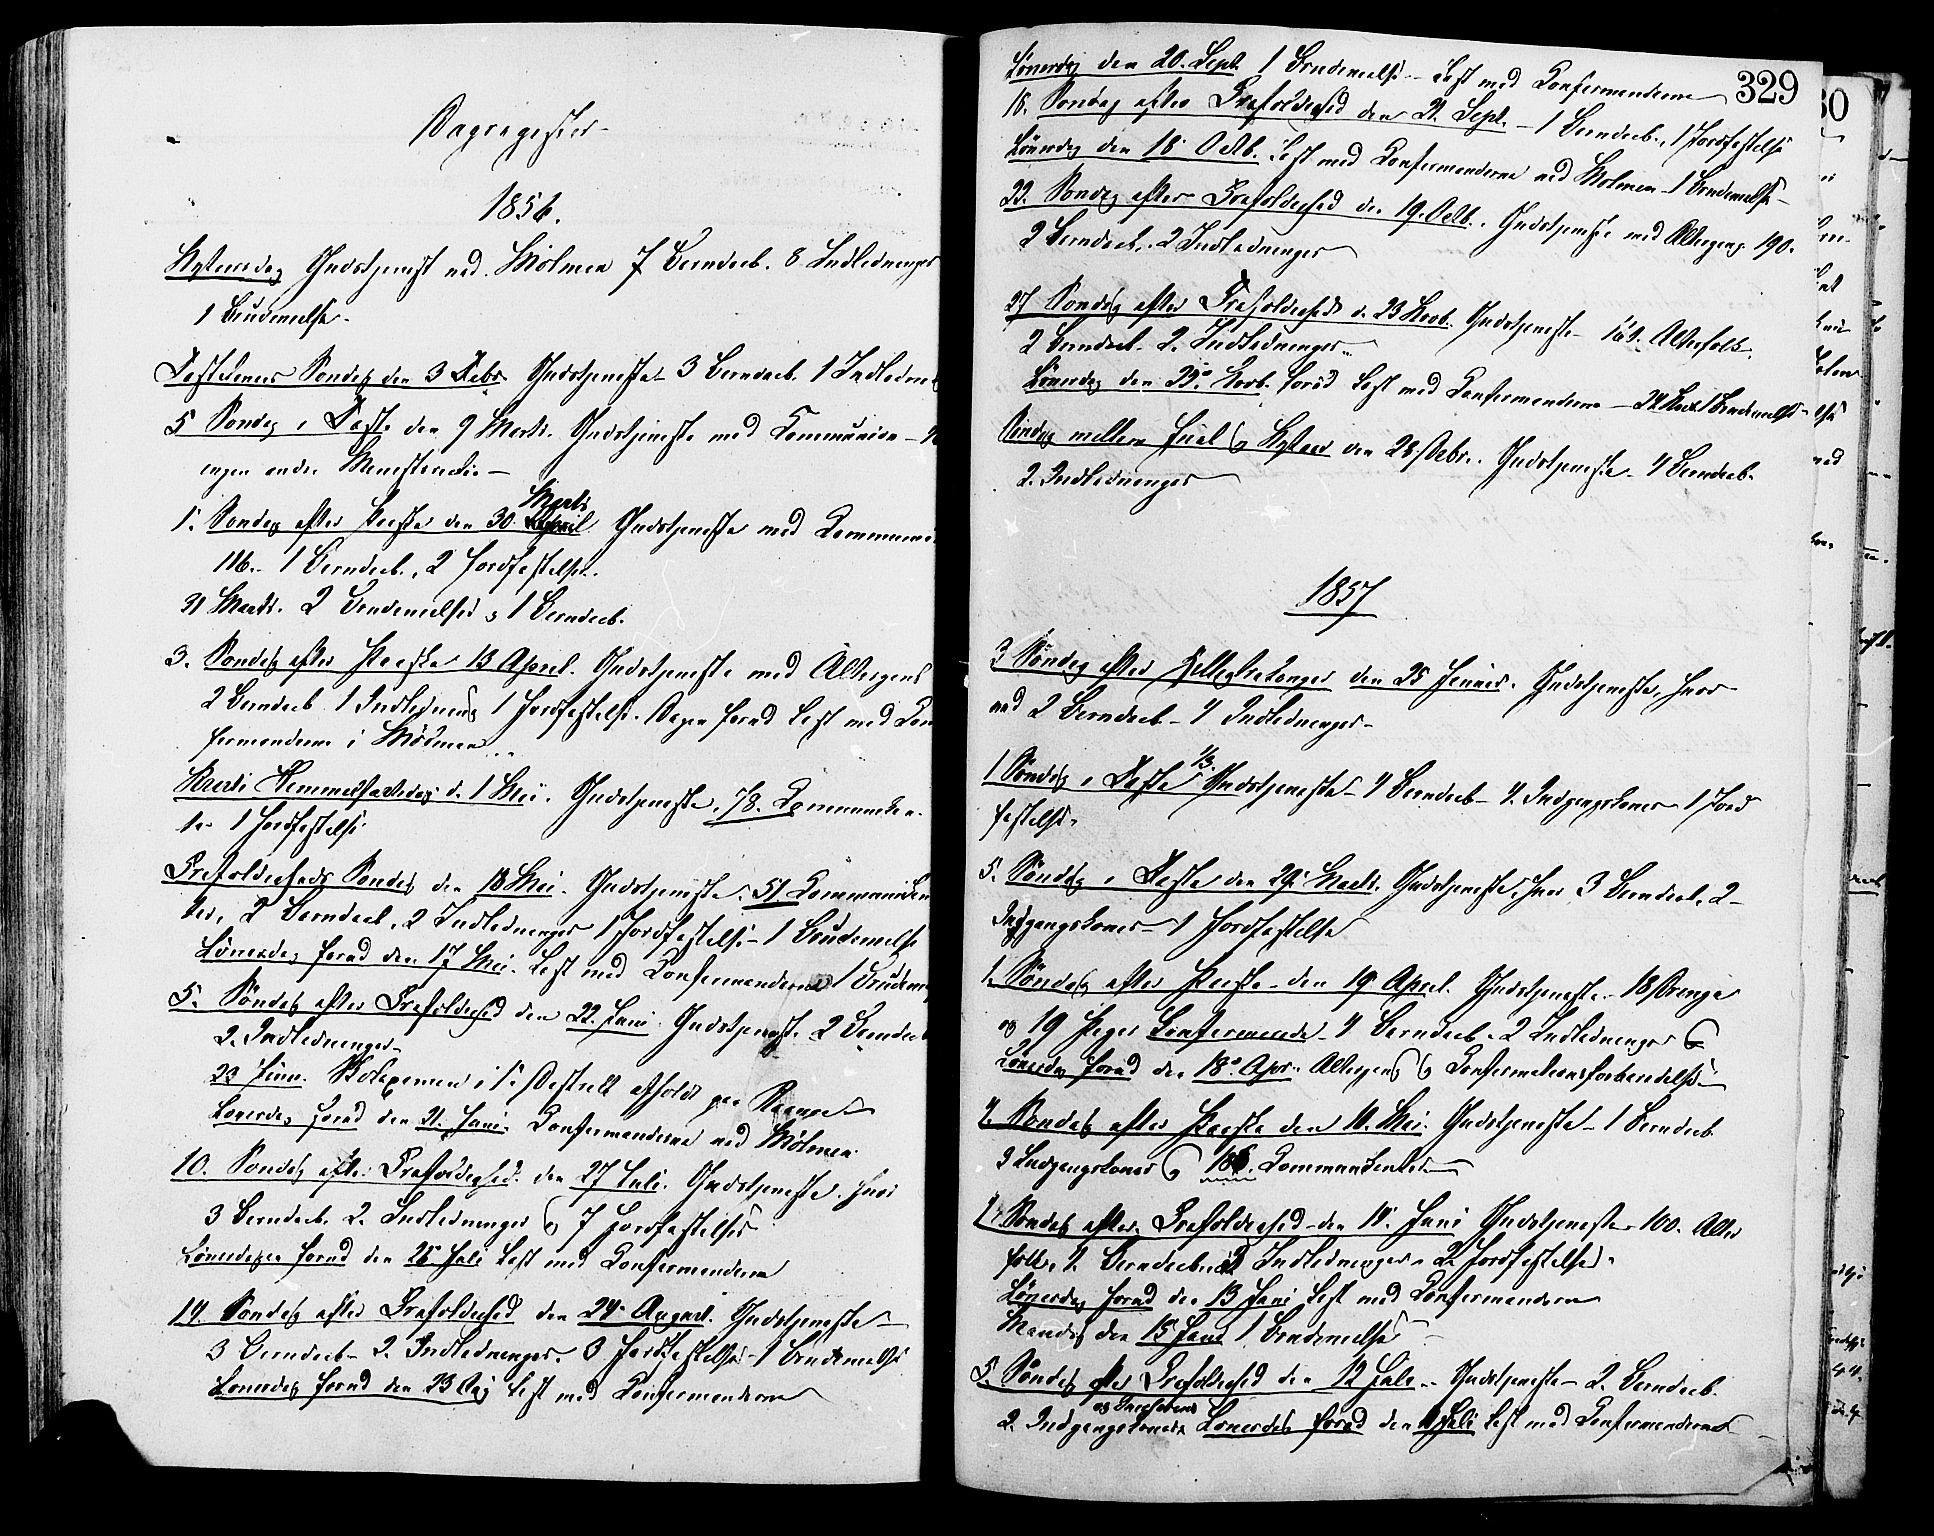 Dagregister
1856.
Nytaarsdag Gudstjeneste ved Mölmen 7 Barnedaab. 8 Indledninger
1 Brudevielse.
Fastelavns Søndag den 3 Febr. Gudstjeneste 3 Barnedaab. 1 Indledning
5 Søndag i Faste den 9 Marts. Gudstjeneste med Communion
ingen andre
1. Søndag efter Paaske den 30. Marts April Gudstjeneste med Communion
116. 1 Barnedaab, 2 Jordfæstelser.
31 Marts. 2 Brudevielser, 1 Barnedaab.
3. Søndag efter Paaske 13 April. Gudstjeneste med Altergang
2 Barnedaab 1 Indledning 1 Jordfæstelse. Dagen forud Læst med Con
firmanderne i Mölmen
Christi Himmelfartsdag d. 1 Mai. Gudstjeneste, 78. Communikan
ter 1 Jordfæstelse.
Trefoldigheds Søndag den 18 Mai. Gudstjeneste. 51 Communikan
ter, 2 Barnedaab, 2 Indledninger 1 Jordfæstelse 1 Brudevielse
Lönerdag forud den 17 Mai. Læst med Confirmanderne 1 Brudevielse
5. Søndag efter Trefoldighed den 22. Juni. Gudstjeneste. 2 Barnedaab
2. Indledninger
23 Juni. Skolexamen i 1. Distrikt afholdt paa
Lönerdag forud den 21. Juni. Confirmanderne ved Mölmen.
10. Søndag efter Trefoldighed. den 27 Juli. Gudstjeneste. hvor
3 Barnedaab. 2. Indledninger og 7 Jordfæstelser
Lönerdagen forud den 26 Juli Læst med Confirmanderne
14. Søndag efter Trefoldighed den 24. August. Gudstjeneste
3 Barnedaab 2. Indledninger. 3 Jordfæstelser 1 Brudevielse
Lönerdag forud den 23 Aug Læst med Confirmanderne
329
Lönerdag den 20. Sept. 1 Brudevielse Læst med Confirmanderne
18. Søndag efter Trefoldighed den 21. Sept. 1 Barnedaab, 1 Jordfæstelse
Lönerdag den 18. Octb. Læst med Confirmanderne ved Mölmen 1 Brudevielse
22. Søndag efter Trefoldighed den 19. Octb. Gudstjeneste med Altergang 190.
2 Barnedaab. 2 Indledninger
27 Søndag efter Trefoldighed d. 23 Novb. Gudstjeneste 161. Alterfolk.
2 Barnedaab. 2. Indledninger
Lönerdag den 22. Novb. forud Læst med Confirmanderne 1 Brudevielse
Søndag mellem Juul og Nytaar den 28 Debr. Gudstjeneste. 4 Barnedaab.
2. Indledninger
1857
3 Søndag efter Helligtrekonger den 25 Januar. Gudstjeneste, hvor
ved 2 Barnedaab 4 Indledninger
1 Søndag i Faste 1/3. Gudstjeneste 4 Barnedaab 4. Indgangskoner 1 Jord
fæstelse.
5. Søndag i Faste den 29. Marts. Gudstjeneste, hvor 3 Barnedaab, 2
Indgangskoner 1 Jordfæstelse
1. Søndag efter Paaske den 19 April. Gudstjeneste 18 Drenge
og 19 Piger Confirmerede 4 Barnedaab. 2 Indledninger og
Lönerdag forud den 18. Apr. Altergang og Confirmationsforberedelse
4. Søndag efter Paaske den 10. Mai. Gudstjeneste 1 Barnedaab.
3 Indgangskoner og 186. Communikanter
1. Søndag efter Trefoldighed den 14. Juni Gudstjeneste 100. Alter
folk. 4. Barnedaab 2 Indledninger. 2. Jordfæstelser.
Lönerdag forud den 13 Juni Læst med Confirmanderne
Mandag den 15 Juni 1 Brudevielse
5. Søndag efter Trefoldighed den 12 Juli. Gudstjeneste 2. Barnedaab.
2. Indgangskoner Lönerdag forud den 11 Juli Læst med Confirmanderne